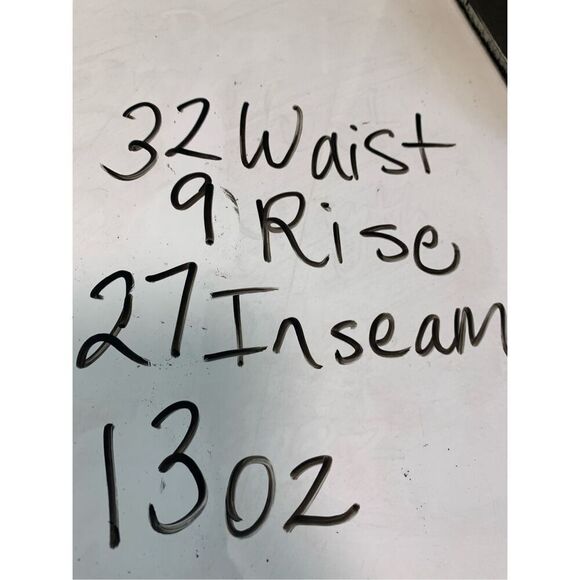 32 Waist
9 Rise
27 Inseam
13oz